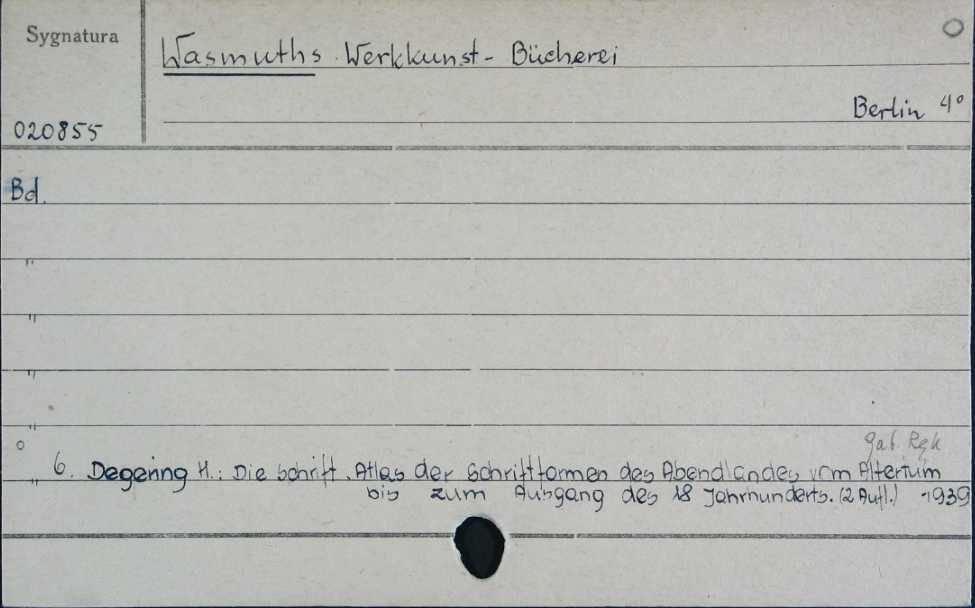 Sygnatura
Wasmuths Werkkunst - Bücherei
Berlin 4°
020855
Bd.
"
"
"
"
gab. Ręk
6. Degering H.: Die Schrift. Atlas der Schriftformen des Abendlandes vom Altertum
" bis zum Ausgang des 18 Jahrhunderts. (2 Aufl.) 1939